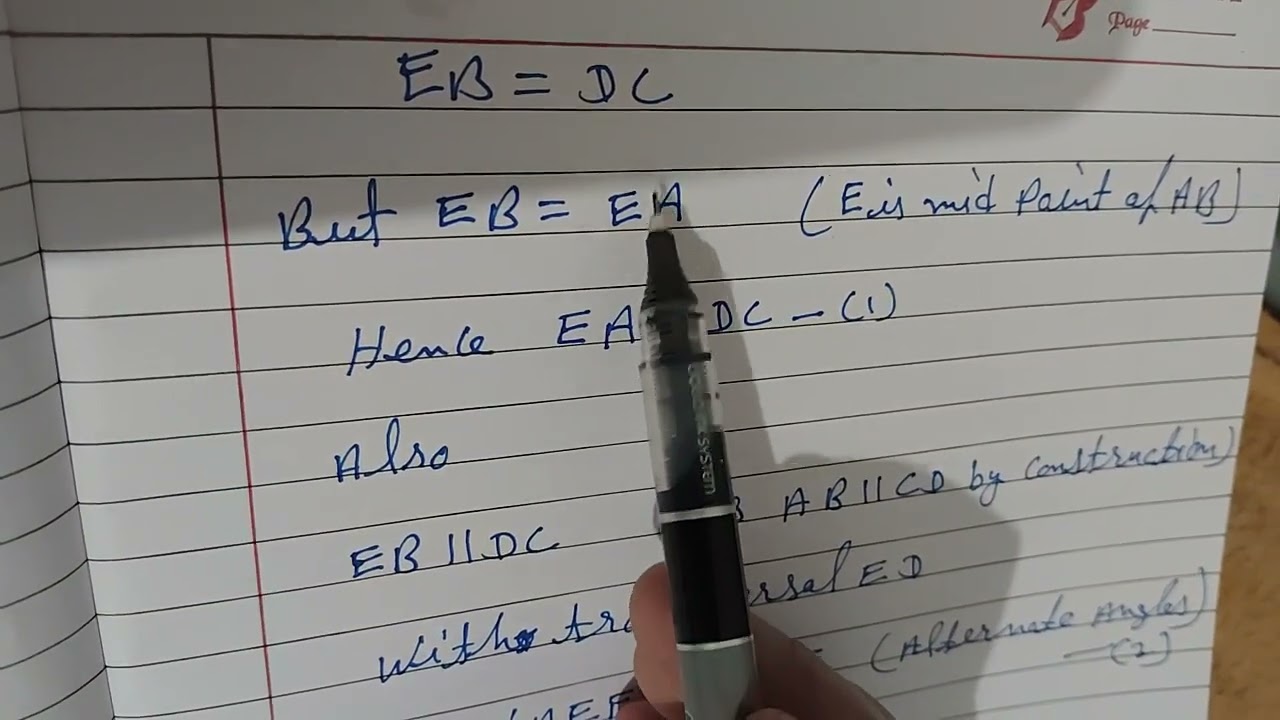 Page
EB = DC
But EB = EA (E is mid Point of AB)
Hence EA DC - (1)
Also
EB || DC AB || CD by construction)
With ED
(Alternate Angles)
-(2)